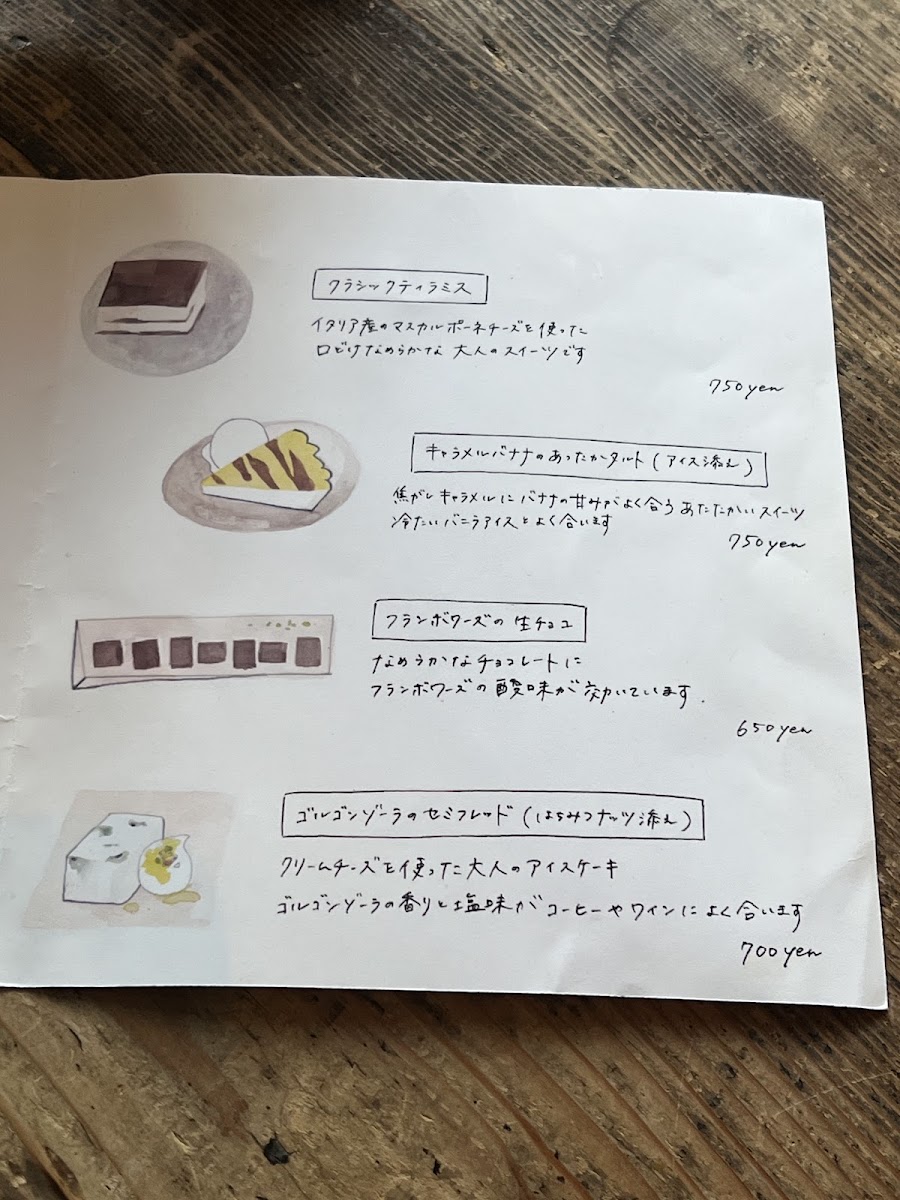 クラシックティラミス
イタリア産のマスカルポーネチーズを使った
口どけなめらかな 大人のスイーツです
750yen
キャラメルバナナのあったかタルト(アイス添え)
焦がしキャラメルにバナナの甘みがよく合うあたたかいスイーツ
冷たいバニラアイスとよく合います
750yen
フランボワーズの生チョコ
なめらかなチョコレートに
フランボワーズの酸味が効いています.
650yen
ゴルゴンゾーラのセミフレッド(はちみつナッツ添え)
クリームチーズを使った大人のアイスケーキ
ゴルゴンゾーラの香りと塩味がコーヒーやワインによく合います
700yen